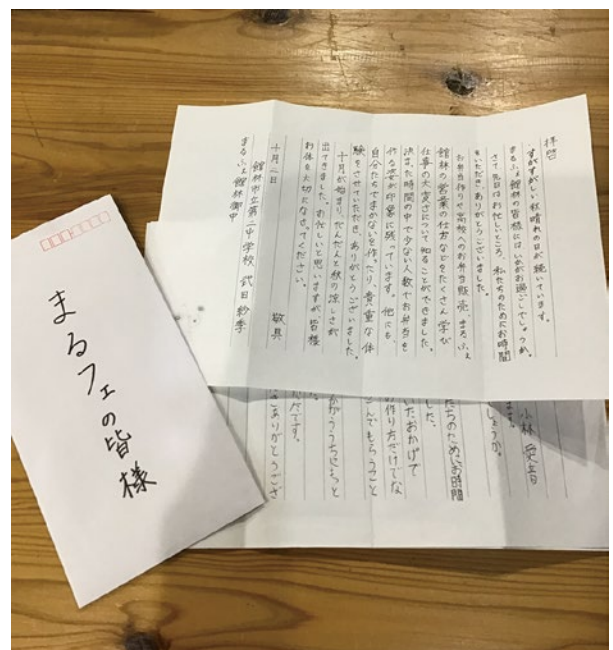 まるフェの皆様
拝啓
すがすがしい秋晴れの日が続いています。
まるふぇ館林の皆様にはいかがお過ごしでしょうか。
さて、先日はお忙しいところ、私たちのためにお時間
をいただき、ありがとうございました。
お弁当作りや高校へのお弁当販売、まるふぇ
館林の営業の仕方などをたくさん学び
仕事の大変さについて知ることができました。
決まった時間の中で少ない人数でお弁当を
作る姿が印象に残っています。他にも、
自分たちでまかないを作ったり、貴重な体
験をさせていただき、ありがとうございました。
十月が始まり、だんだんと秋の涼しさが
出てきました。お忙しいと思いますが皆様
お体を大切になさってください。
敬具
十月二日
館林市立第二中学校
まるふぇ館林御中
小林
しょうか。
たちのためにお時間
した。
いたおかげで
の作り方だけでな
こんでもらうこと
がうちにもっと
です。
きありがとうござ